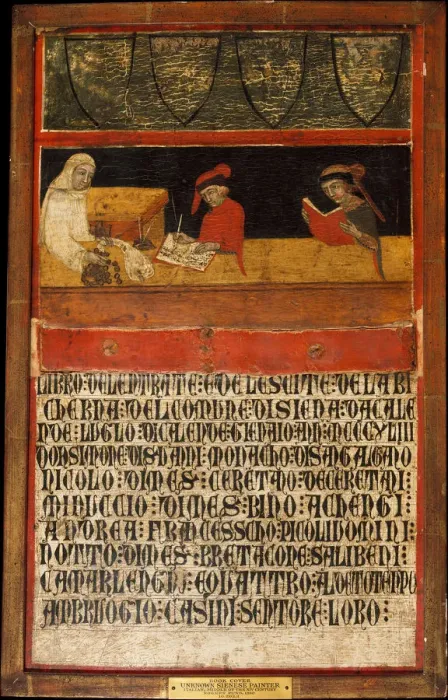 LIBRO : DELENTRATE : E DELESCITE : DELA BI
CHERNA : DELCOMUNE : DISIENA : DACALE
NDE : LUGLO : DICALENDE : GIENAIO : ANI : MCCCXLIII
DONSIMONE : DISER : VANNI : MONACHO : DISANGALGANO
NICOLO : DIMES : CERETANO : DECERETANI :
MINUCCIO : DIMES : BINO : ACHENGI
ANDREA : FRANCESSCHO : PICOLUOMINI :
NOTTO : DIMES : BRETACONE : SALIBENI :
CAMARLENGO : EQUATTRO : ALDETOTENPO
AMBRUOGIO : CASINI : SCRITORE : LORO :
BOOK COVER
UNKNOWN SIENESE PAINTER
ITALIAN, MIDDLE OF THE XIV CENTURY
ROGERS FUND, 1910